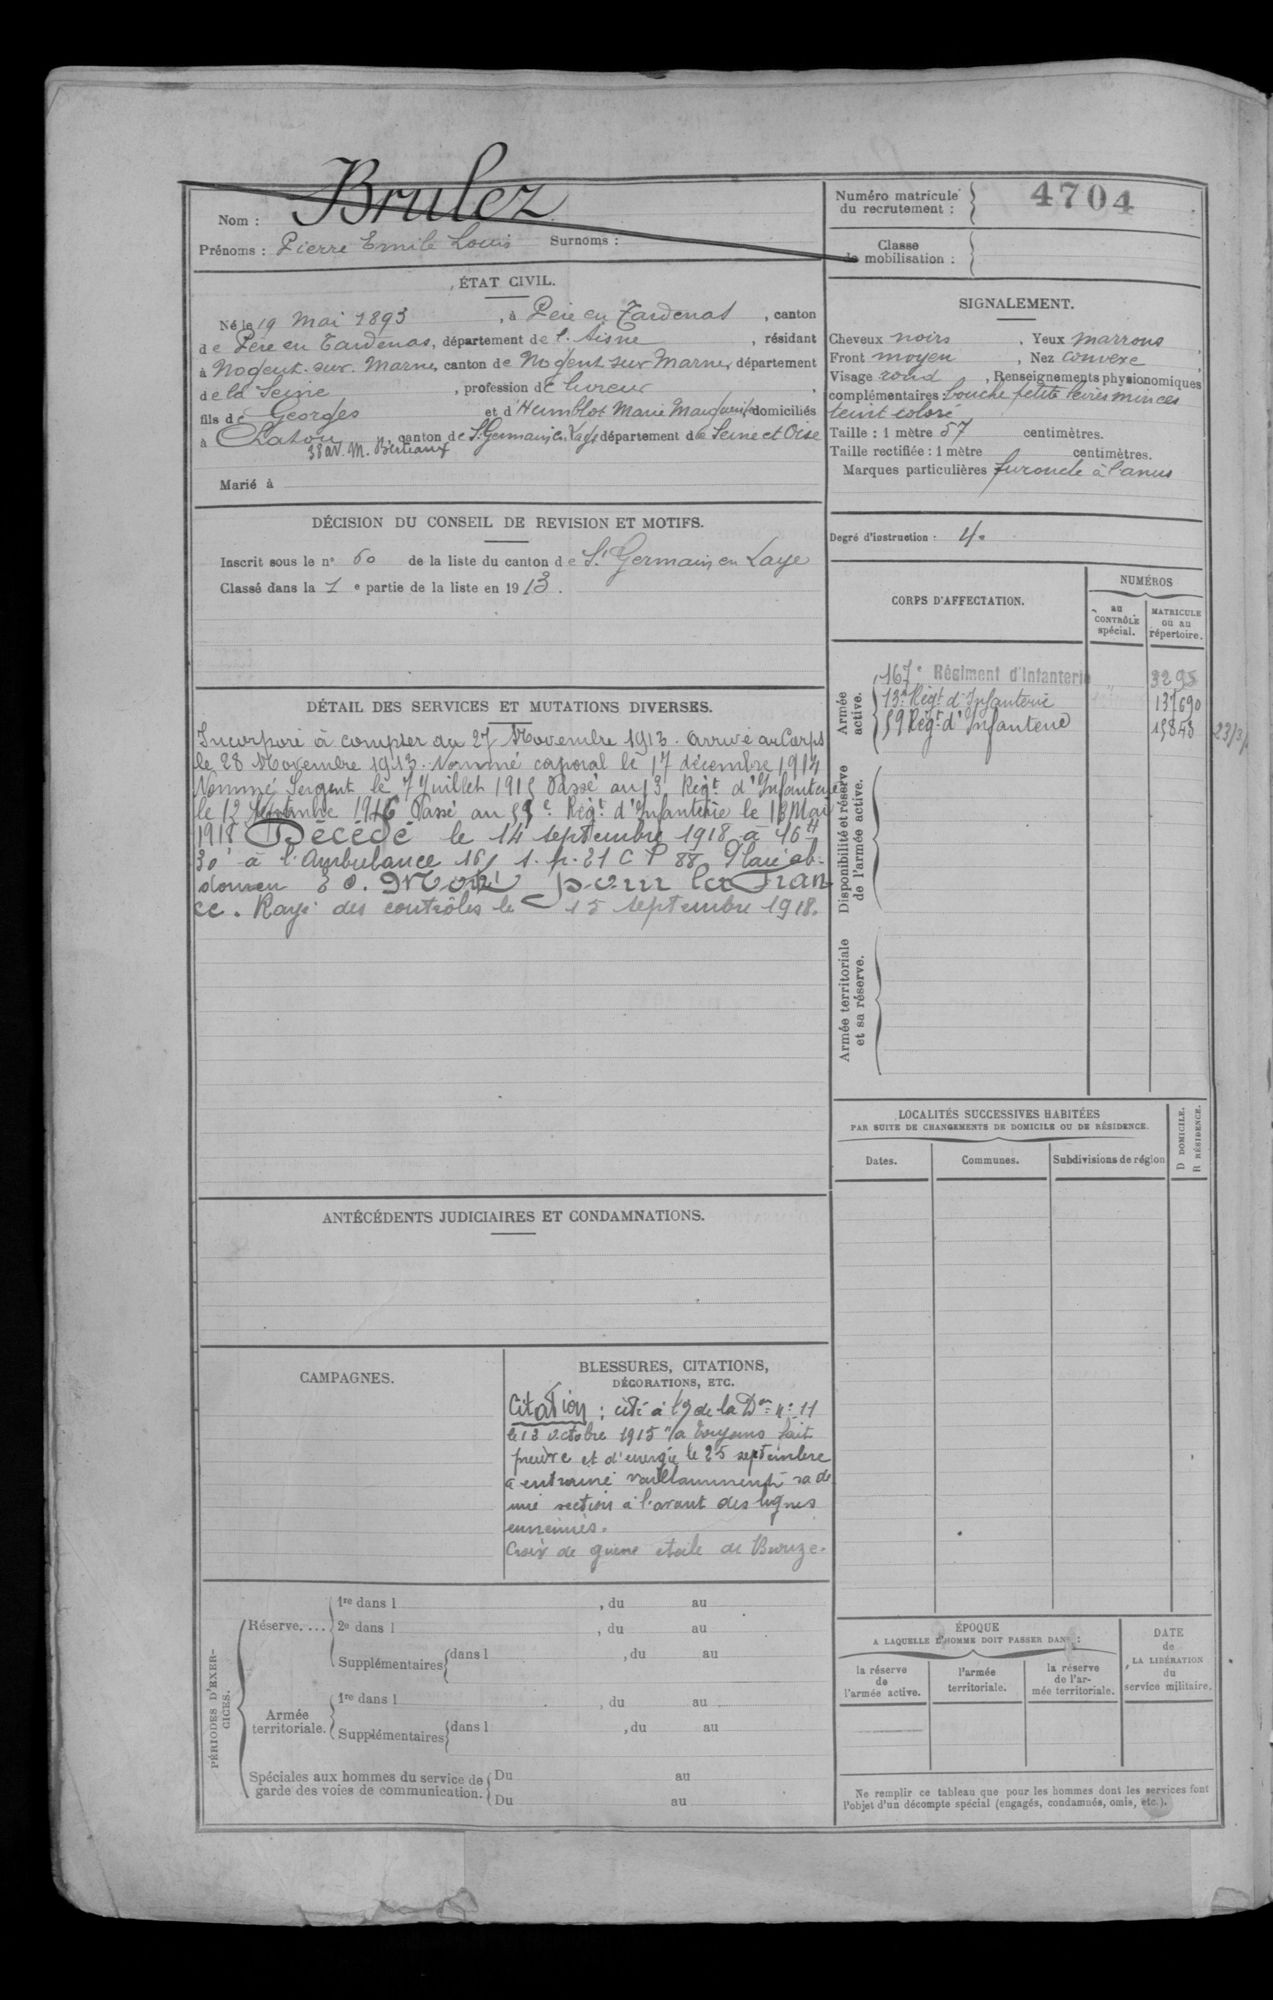 Nom : Brulez
Prénoms : Pierre Emile Louis Surnoms :
Numéro matricule du recrutement : 4704
Classe de mobilisation :
ÉTAT CIVIL.
Né le 19 Mai 1893, à Fère en Tardenois, canton
de Fère en Tardenois, département de l'Aisne, résidant
à Nogent-sur-Marne, canton de Nogent sur Marne, département
de la Seine, profession de livreur,
fils de Georges et d'Humblot Marie Marguerite domiciliés
à Chatou, canton de St Germain en Laye département de Seine et Oise
38 av. M. Berteaux
Marié à
SIGNALEMENT.
Cheveux noirs, Yeux marrons,
Front moyen, Nez convexe,
Visage rond, Renseignements physionomiques
complémentaires bouche petite lèvres minces
teint coloré
Taille : 1 mètre 57 centimètres.
Taille rectifiée : 1 mètre centimètres.
Marques particulières furoncle à l'anus
Degré d'instruction : 4.
DÉCISION DU CONSEIL DE REVISION ET MOTIFS.
Inscrit sous le n° 60 de la liste du canton de St Germain en Laye
Classé dans la 1e partie de la liste en 1913.
CORPS D'AFFECTATION.
NUMÉROS
au CONTRÔLE spécial.
MATRICULE ou au répertoire.
Armée active.
167e Régiment d'Infanterie " 3295
13e Régt d'Infanterie 137690
59 Régt d'Infanterie 15843
Disponibilité et réserve de l'armée active.
Armée territoriale et sa réserve.
DÉTAIL DES SERVICES ET MUTATIONS DIVERSES.
Incorporé à compter du 27 Novembre 1913. Arrivé au Corps
le 28 Novembre 1913. Nommé caporal le 17 décembre 1914
Nommé Sergent le 7 Juillet 1915 Passé au 13 Régt d'Infanterie
le 12 1916 Passé au 59e Régt d'Infanterie le 18 Mai
1918 Décédé le 14 septembre 1918 à 16H
30' à l'Ambulance 16/ S. P. 88 Plaie ab-
domen E O. Mort pour la Fran
ce. Rayé des contrôles le 15 septembre 1918.
LOCALITÉS SUCCESSIVES HABITÉES
PAR SUITE DE CHANGEMENTS DE DOMICILE OU DE RÉSIDENCE.
Dates.
Communes.
Subdivisions de région
D DOMICILE.
R RÉSIDENCE.
ANTÉCÉDENTS JUDICIAIRES ET CONDAMNATIONS.
CAMPAGNES.
BLESSURES, CITATIONS,
DÉCORATIONS, ETC.
Citation : cité à l'O de la Don n° 11
le 13 octobre 1915 "a toujours fait
preuve et d'énergie le 25 septembre
a entrainé vaillamment sa de
mie section à l'avant des lignes
ennemies.
Croix de guerre étoile de Bronze.
PÉRIODES D'EXERCICES.
Réserve....
1re dans l , du au
2e dans l , du au
Supplémentaires dans l , du au
Armée territoriale.
1re dans l , du au
Supplémentaires dans l , du au
Spéciales aux hommes du service de
garde des voies de communication.
Du au
Du au
ÉPOQUE
A LAQUELLE L'HOMME DOIT PASSER DANS :
la réserve de l'armée active.
l'armée territoriale.
la réserve de l'armée territoriale.
DATE de LA LIBÉRATION du service militaire.
Ne remplir ce tableau que pour les hommes dont les services font
l'objet d'un décompte spécial (engagés, condamnés, omis, etc.).